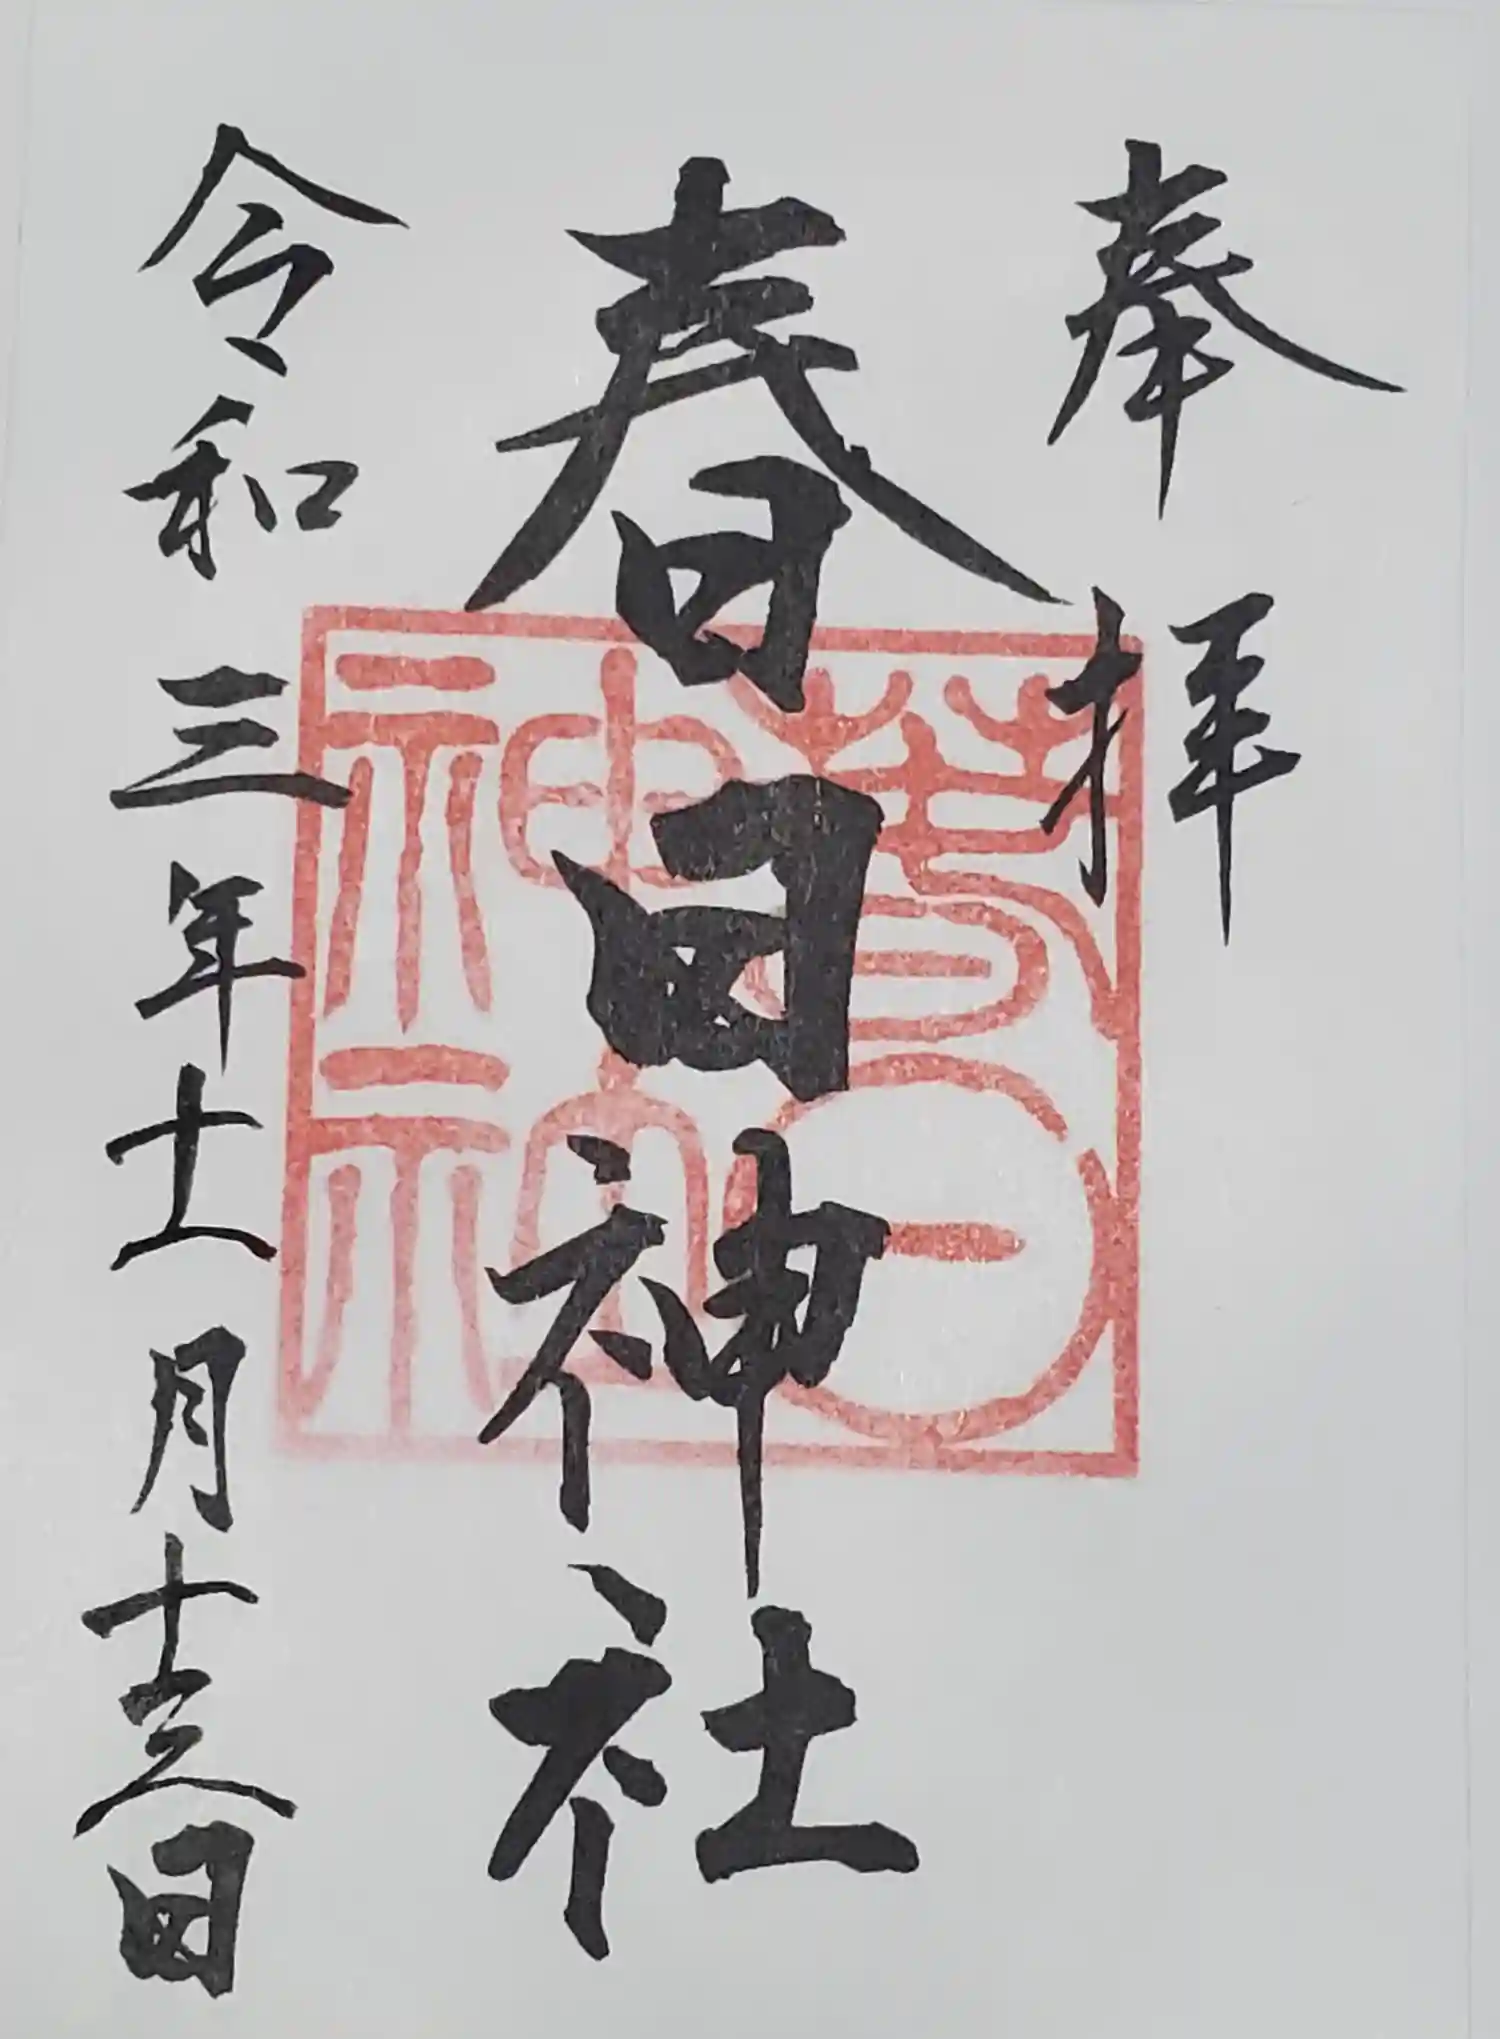 奉拝
春日神社
令和三年十一月十日
春日
神社